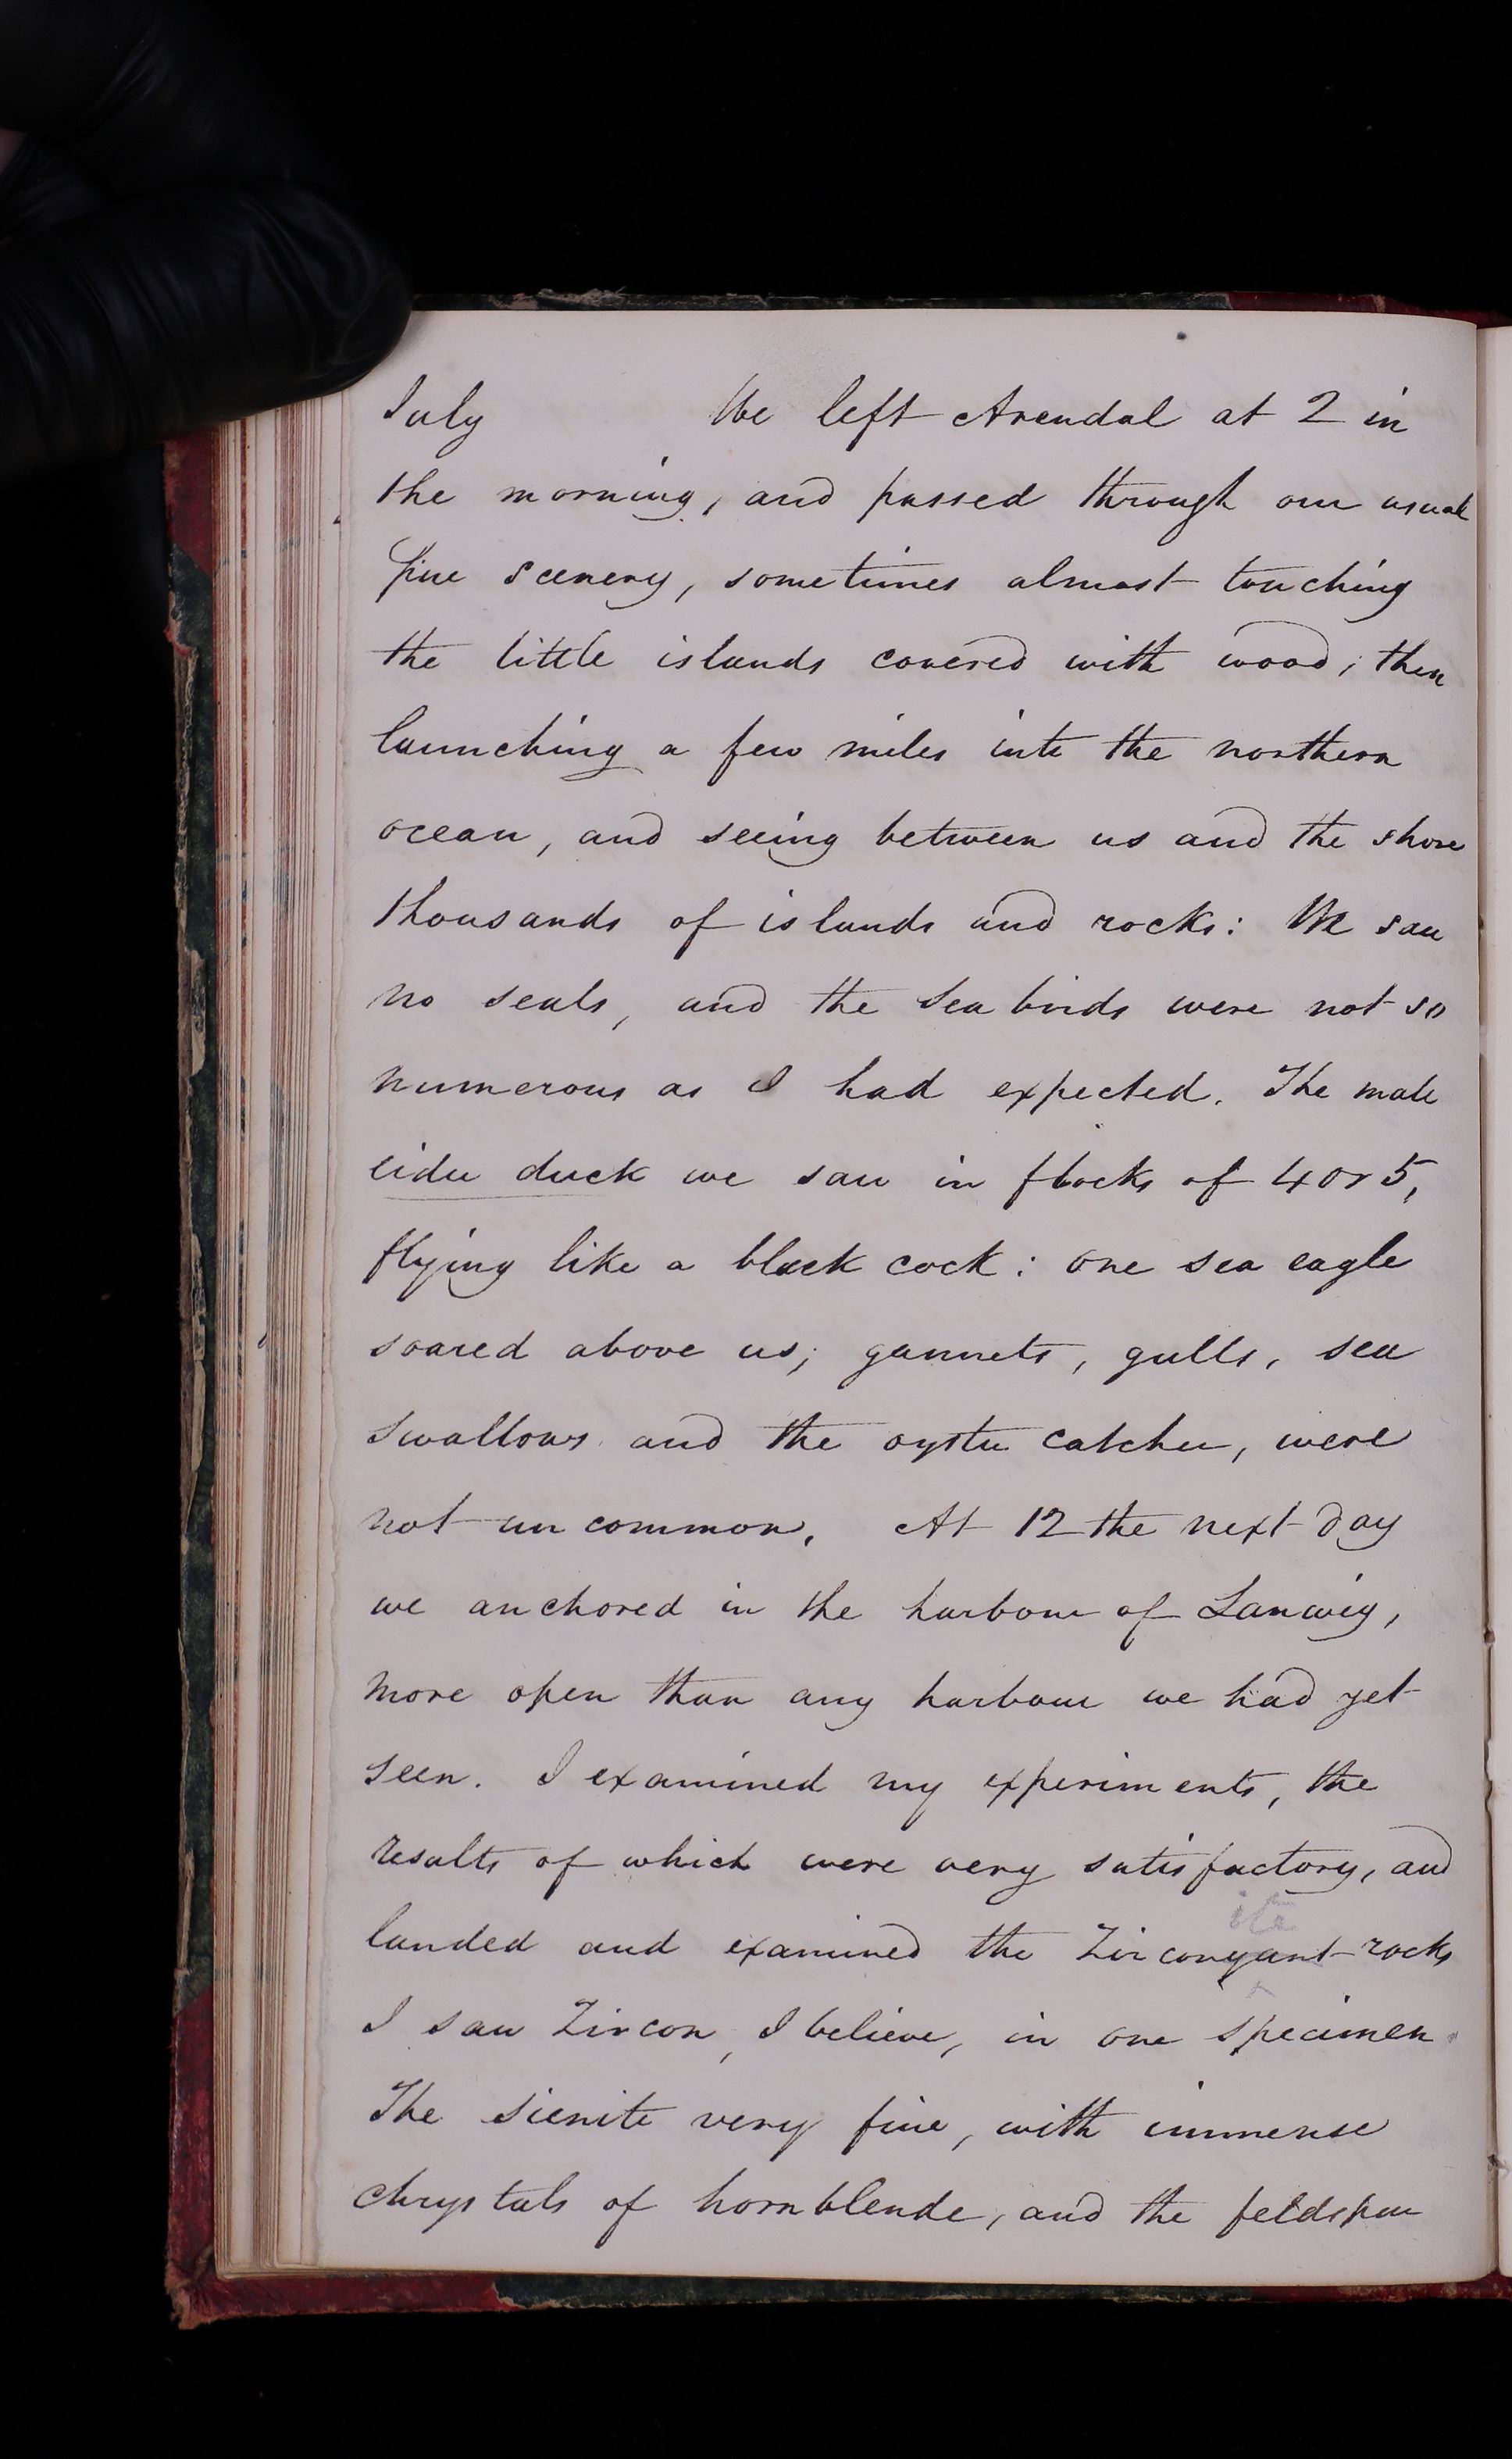 July We left Arendal at 2 in
the morning, and passed through our usual
fine scenery, sometimes almost touching
the little islands covered with wood; then
launching a few miles into the northern
ocean, and seeing between us and the shore
thousands of islands and rocks: We saw
no seals, and the sea birds were not so
numerous as I had expected. The male
eider duck we saw in flocks of 4 or 5,
flying like a black cock: one sea eagle
soared above us; gannets, gulls, sea
swallows and the oyster catcher, were
not uncommon. At 12 the next day
we anchored in the harbour of Lanwig,
more open than any harbour we had yet
seen. I examined my experiments, the
results of which were very satisfactory, and
ite
landed and examined the Zirconyant rocks
I saw Zircon, I believe, in one specimen.
The sienite very fine, with immense
chrystals of hornblende, and the feldspar